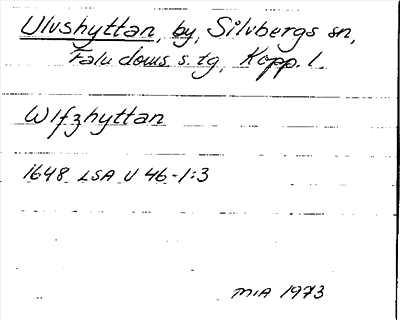 Ulvshyttan, by, Silvbergs sn,
Falu doms s. tg, Kopp. l.
Wlfzhyttan
1648 LSA U 46-1:3
MIA 1973